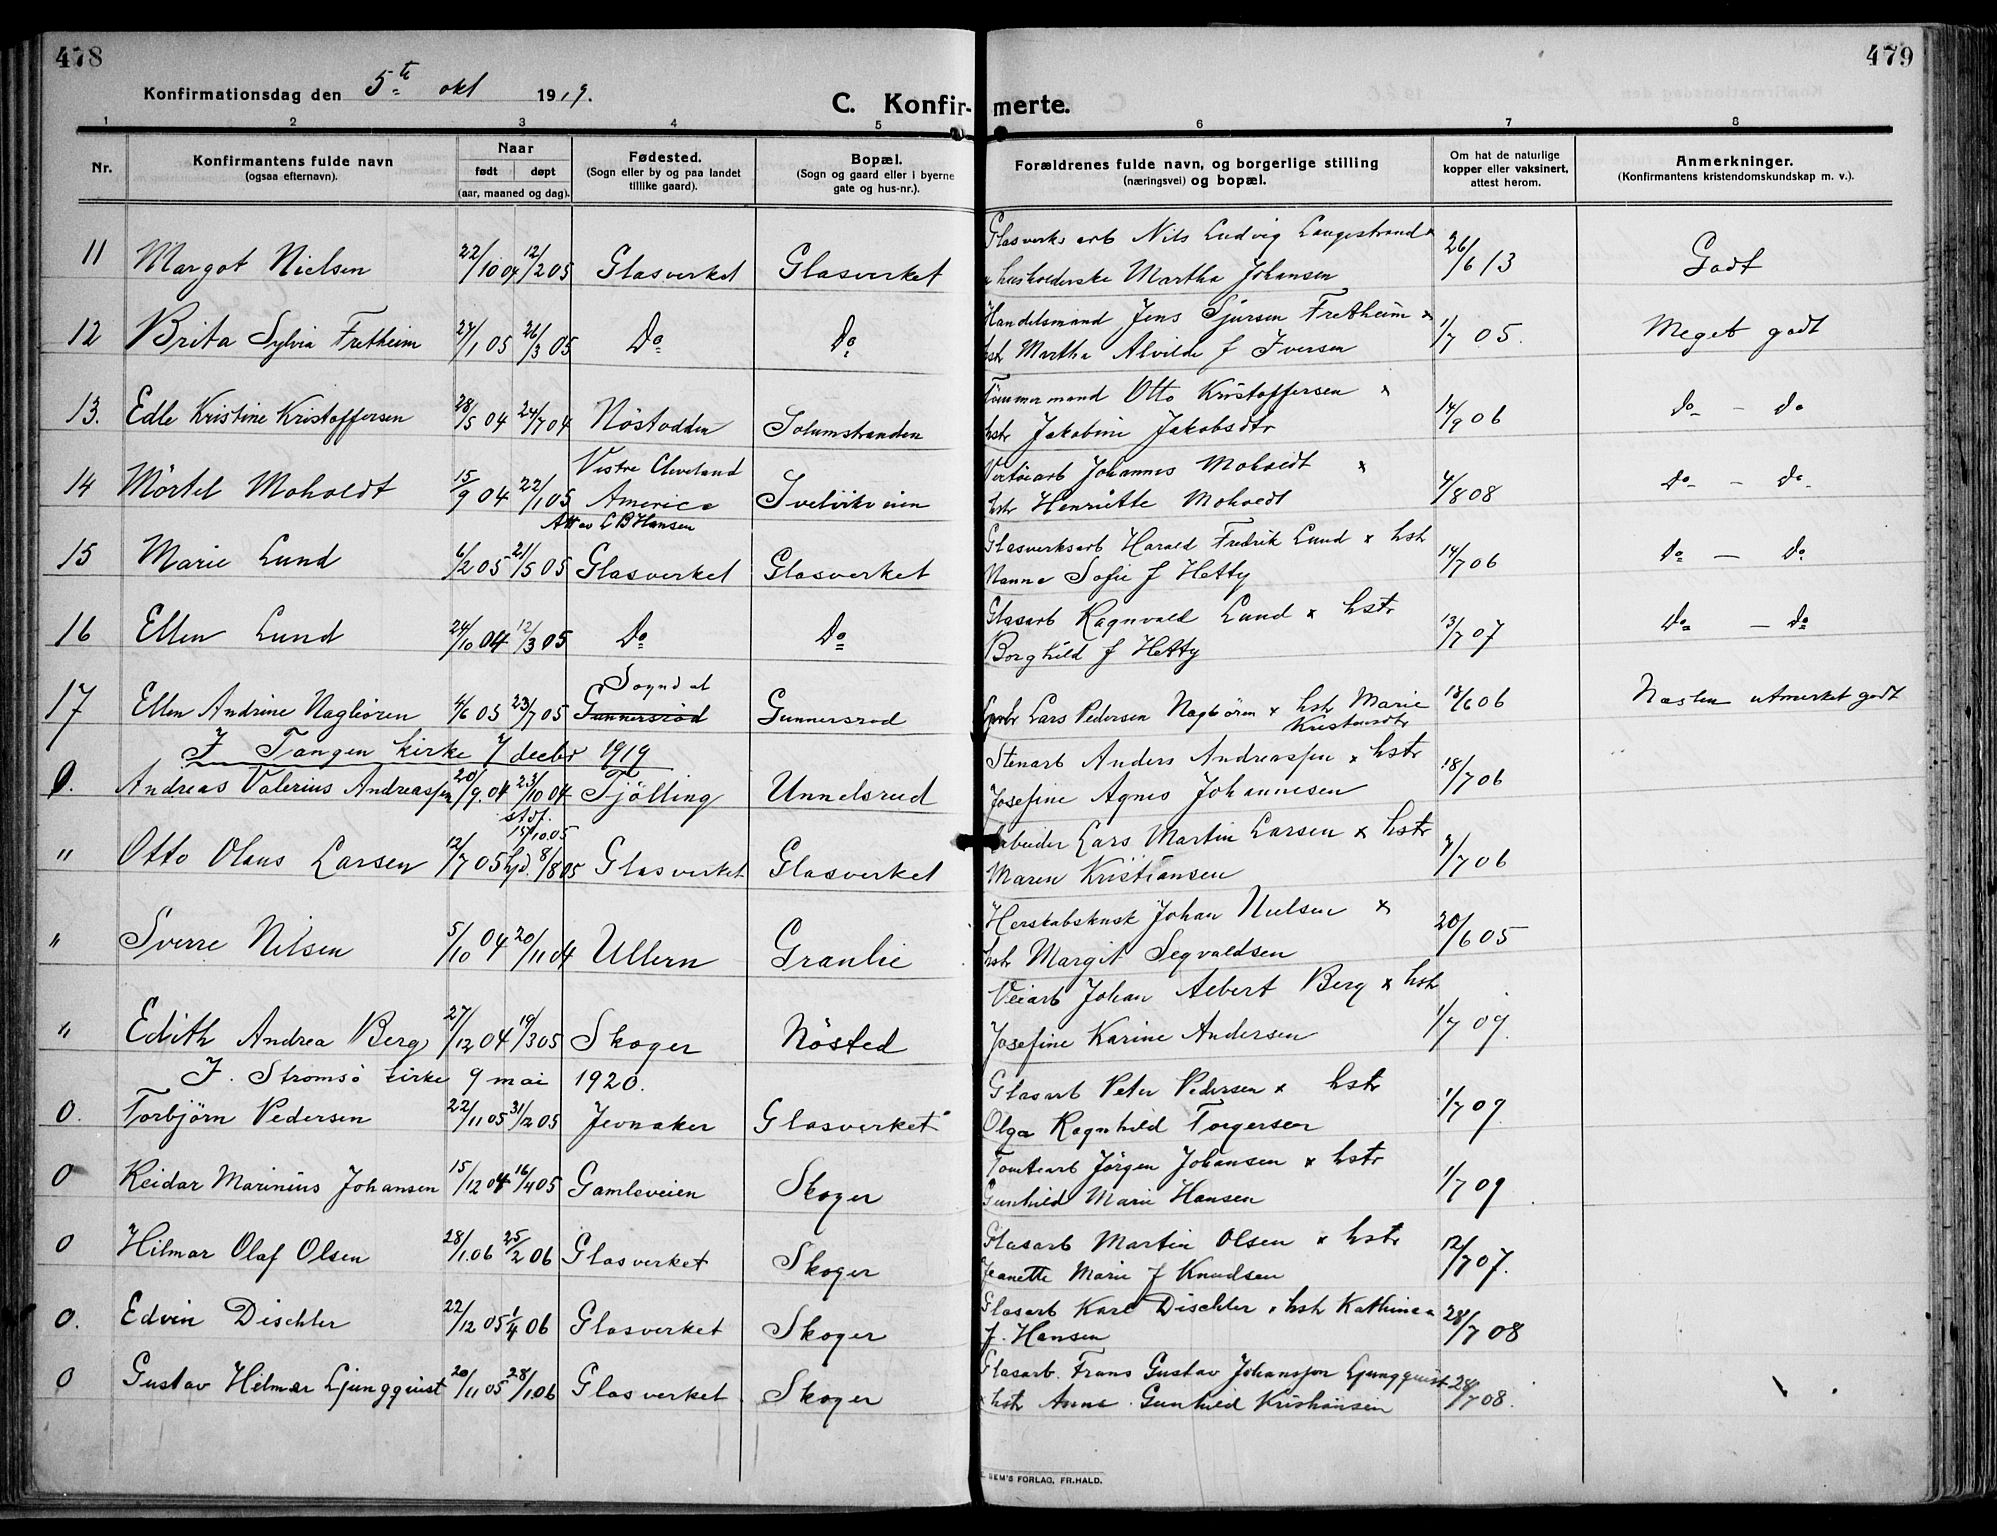 478
479
Konfirmationsdag den 5te okt 1919.
C. Konfirmerte.
1 2 3 4 5 6 7 8
Nr.
Konfirmantens fulde navn
(ogsaa efternavn).
Naar
født døpt
(aar, maaned og dag).
Fødested.
(Sogn eller by og paa landet
tillike gaard).
Bopæl.
(Sogn og gaard eller i byerne
gate og hus-nr.).
Forældrenes fulde navn, og borgerlige stilling
(næringsvei) og bopæl.
Om hat de naturlige
kopper eller vaksinert,
attest herom.
Anmerkninger.
(Konfirmantens kristendomskundskap m. v.).
Glasverks arb Nils Ludvig Langestrand
11 Margot Nielsen 22/10 04 12/2 05 Glasverket Glasverket husholderske Martha Johansen 26/6 13 Godt
Handelsmand Jens Sjursen Fretheim x
12 Brita Sylvia Fretheim 27/1 05 26/3 05 Do Do hstr Martha Alvilde f Iversen 1/7 05. Meget godt
Tömmermand Otto Kristoffersen x
13. Edle Kristine Kristoffersen 28/5 04 24/7 04 Nöstodden Solumstranden hstr Jakobine Jakobsdtr 14/9 06 Do - do
Vestre Cleveland Johannes Moholdt x
14 Mörtel Moholdt 15/9 04 22/1 05 America Svelvikveien hstr Henriette Moholdt 4/8 08 Do - do
Att av C B Hansen
Glasverksarb Harald Fredrik Lund x hstr
15 Marie Lund 6/2 05 21/5 05 Glasverket Glasverket Nanna Sofie f Hetty 14/7 06 Do - Do
Glasarb Ragnvald Lund x hstr
16 Ellen Lund 24/10 04 12/3 05 Do Do Borghild f Hetty 13/7 07 Do - Do
Sogndal
17 Ellen Andrine Naglören 4/6 05 23/7 05 Gunnersröd Gunnersrod Lars Pedersen Naglören x hstr Marie Kristensdtr 18/6 06 Næsten utmerket godt
I Tangen kirke 7 decbr 1919
Stenarb Anders Andreassen x hstr
0. Andreas Valerius Andreassen 20/9. 04 23/10 04 Tjölling Unnelsrud Josefine Agnes Johannesen 18/7 06
st df. 15/10 05
Arbeider Lars Martin Larsen x hstr
" Otto Olaus Larsen 12/7 05 hjd. 8/8 05 Glasverket Glasverket Maren Kristiansen 7/7 06
Herskabskusk Johan Nielsen x
" Sverre Nilsen 5/10 04 20/11 04 Ullern Granlie hstr Margit Segvaldsen 20/6 05
Veiarb Johan Albert Berg x hstr
" Edith Andrea Berg 27/12 04 19/3 05 Skoger Nösted Josefine Karine Andersen 1/7 09.
I. Strömsö kirke 9 mai 1920.
Glasarb Peter Pedersen x hstr
0. Torbjörn Pedersen 22/11 05 31/12 05 Jevnaker Glasverket Olga Ragnhild Torgersen 1/7 09.
Tomtearb Jörgen Johansen x hstr
0 Reidar Marinius Johansen 15/12 04 16/4 05 Gamleveien Skoger Gunhild Marie Hansen 1/7 09
Glasarb Martin Olsen x hstr
0 Hilmar Olaf Olsen 28/1. 06 25/2 06 Glasverket Skoger Jeanette Marie f Knudsen 12/7 07.
Glasarb Karl Dischler x hstr Kathinca
0. Edvin Dischler 22/12 05 1/4 06 Glasverket Skoger f. Hansen 28/7 08
Glasarb. Frans Gustav Johansson Ljungquist
0 Gustav Hilmar Ljungquist 20/11 05 28/1 06 Glasverket Skoger x hstr Anna Gunhild Kristiansen 28/7 08.
SEM'S FORLAG, FR.HALD.